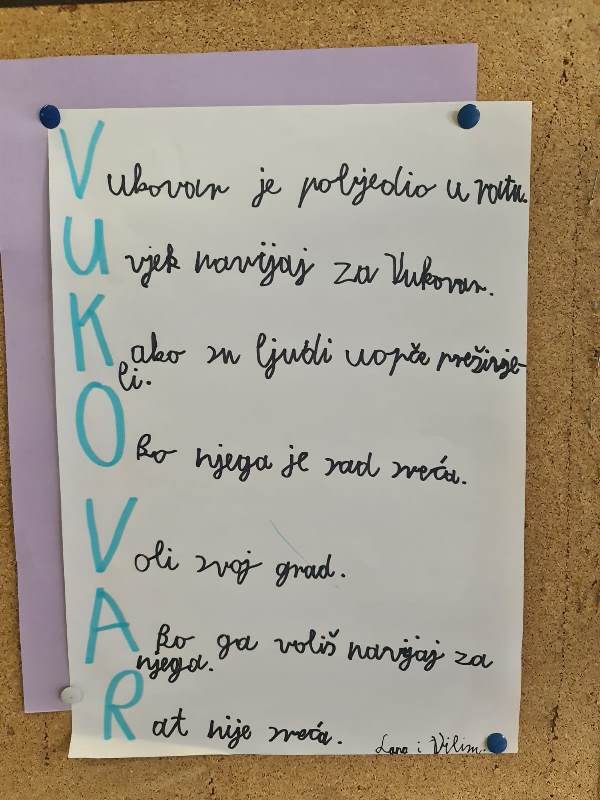 Vukovar je pobjedio u ratu.
Uvjek navijaj za Vukovar.
Kako su ljudi uopče preživje-
li.
Oko njega je sad sreća.
Voli svoj grad.
Ako ga voliš navijaj za
njega.
Rat nije sreća. Lana i Vilim.